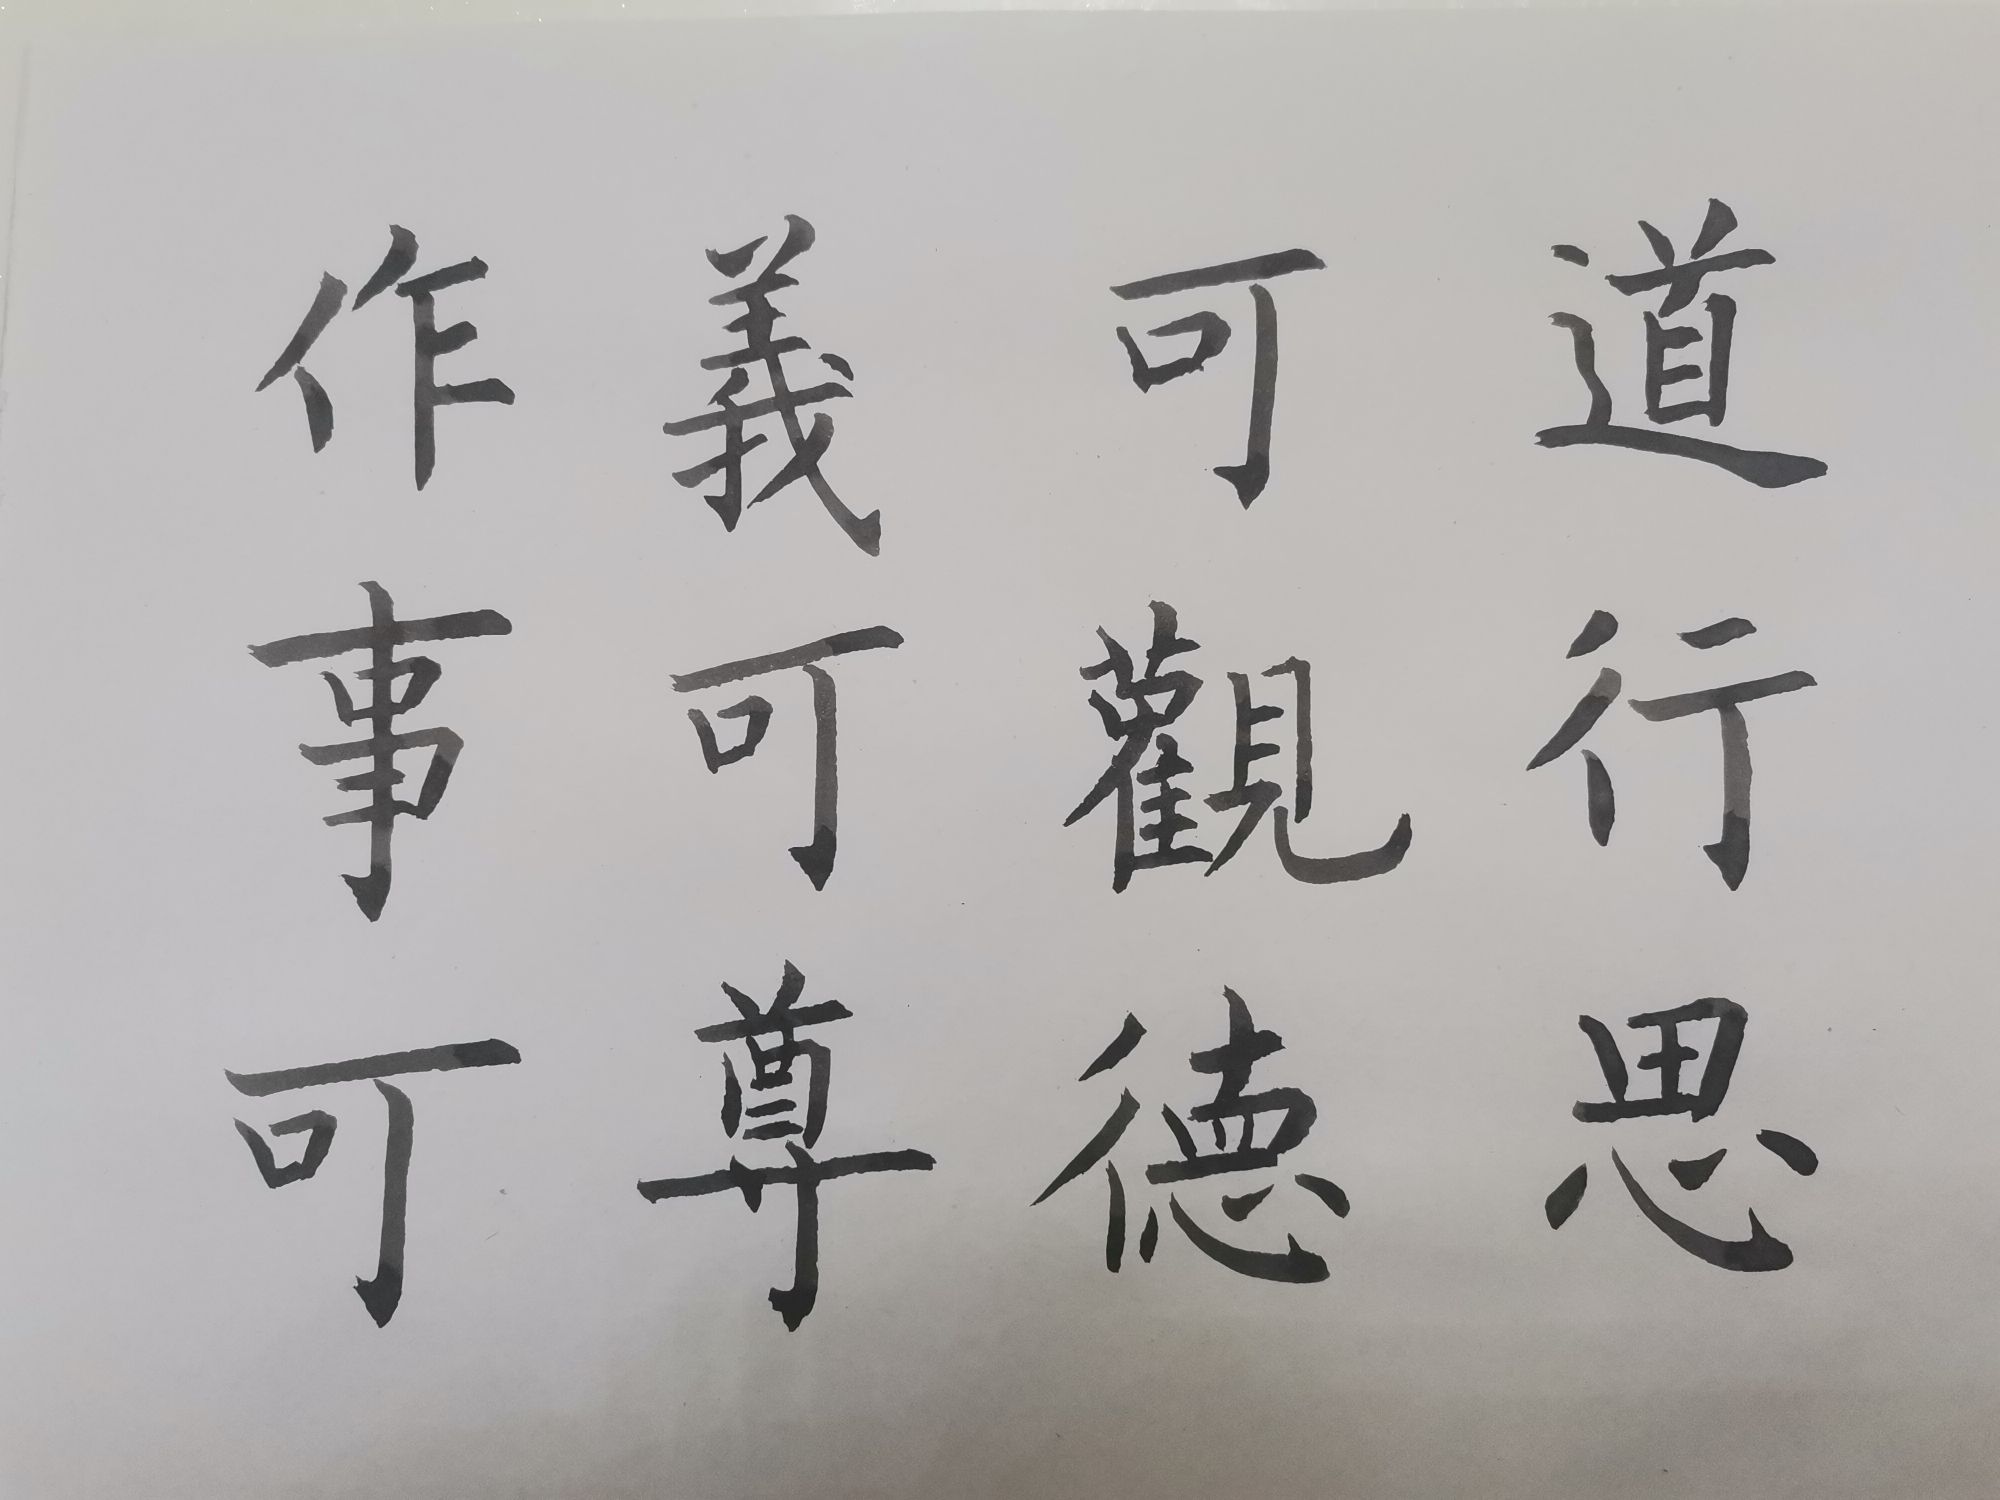 道行思
可觀德
義可尊
作事可